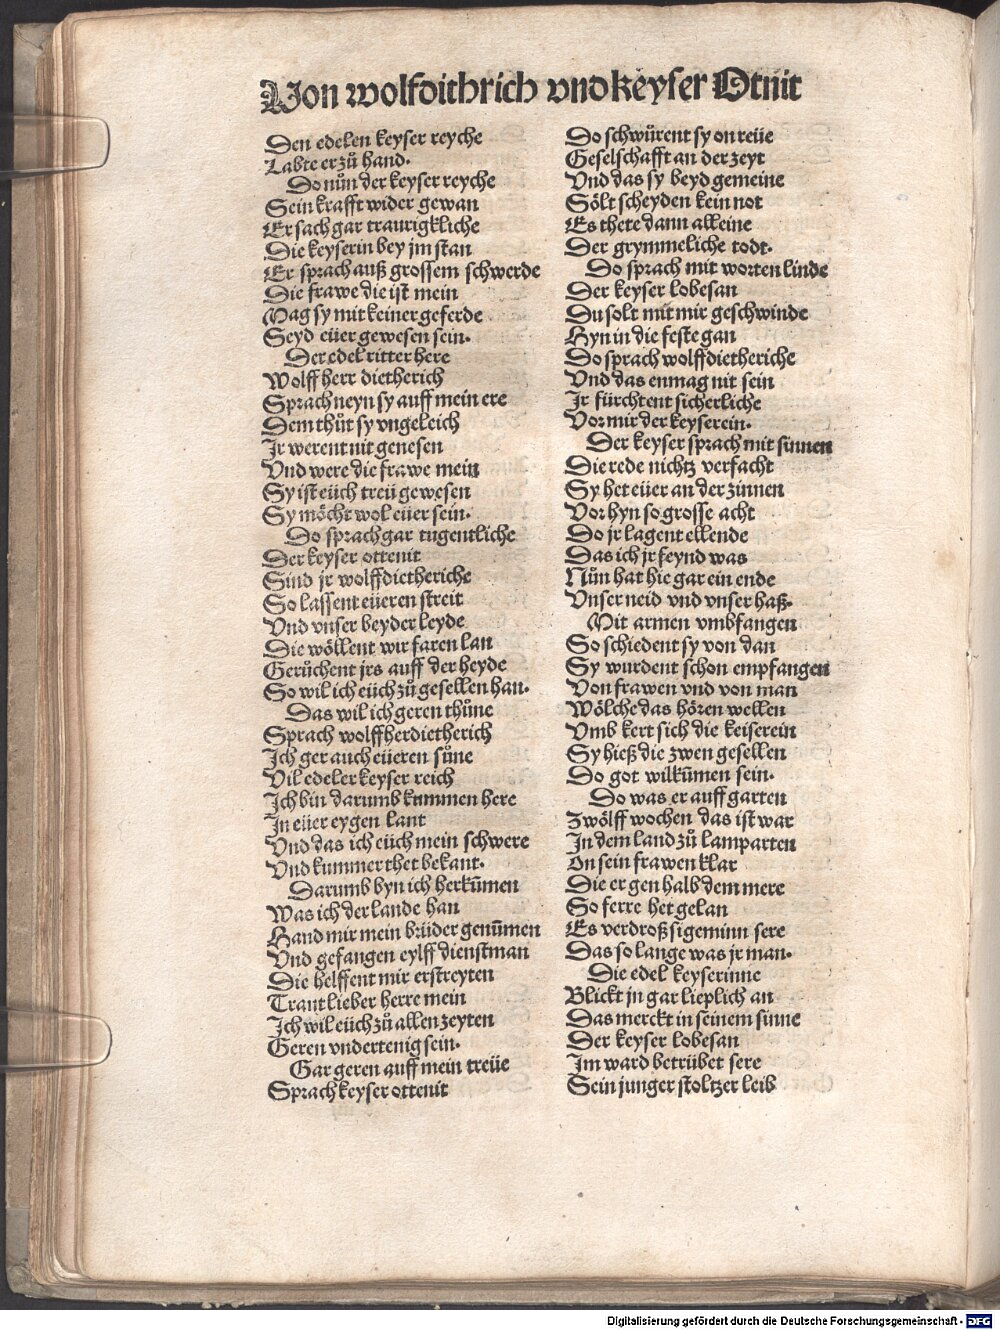 Von wolfdithrich vnd keyser Otnit
Den edelen keyser reyche
Labte er zů hand.
Do nůn der keyser reyche
Sein krafft wider gewan
Er sach gar traurigkliche
Die keyserin bey jm stan
Er sprach auß grossem schwerde
Die frawe die ist mein
Mag sy mit keiner geferde
Seyd eüer gewesen sein.
Der edel ritter here
Wolff herr dietherich
Sprach neyn sy auff mein ere
Dem thůt sy vngeleich
Jr werent nit genesen
Vnd were die frawe mein
Sy ist eüch treü gewesen
Sy möcht wol eüer sein.
Do sprach gar tugentliche
Der keyser ottenit
Sind jr wolffdietheriche
So lassent eüeren streit
Vnd vnser beyder leyde
Die wöllent wir faren lan
Gerůchent jrs auff der heyde
So wil ich eüch zů gesellen han.
Das wil ich geren thůne
Sprach wolffherdietherich
Jch ger auch eüeren sůne
Vil edeler keyser reich
Jch bin darumb kummen here
Jn eüer eygen lant
Vnd das ich eüch mein schwere
Vnd kummer thet bekant.
Darumb byn ich herkūmen
Was ich der lande han
Hand mir mein brüder genūmen
Vnd gefangen eylff dienstman
Die helffent mir erstreyten
Traut lieber herre mein
Jch wil eüch zů allen zeyten
Geren vndertenig sein.
Gar geren auff mein treüe
Sprach keyser ottenit
Do schwůrent sy on reüe
Geselschafft an der zeyt
Vnd das sy beyd gemeine
Sölt scheyden kein not
Es thete dann alleine
Der grymmeliche todt.
Do sprach mit worten linde
Der keyser lobesan
Du solt mit mir geschwinde
Hyn in die feste gan
Do sprach wolffdietheriche
Vnd das enmag nit sein
Jr fürchtent sicherliche
Vor mir der keyserein.
Der keyser sprach mit sinnen
Die rede nichtz verfacht
Sy het eüer an der zinnen
Vor hyn so grosse acht
Do jr lagent ellende
Das ich jr feynd was
Nůn hat hie gar ein ende
Vnser neid vnd vnser haß.
Mit armen vmbfangen
So schiedent sy von dan
Sy wurdent schon empfangen
Von frawen vnd von man
Wölche das hören wellen
Vmb kert sich die keiserein
Sy hieß die zwen gesellen
Do got wilkūmen sein.
Do was er auff garten
Zwölff wochen das ist war
Jn dem land zů lamparten
On sein frawen klar
Die er gen halb dem mere
So ferre het gelan
Es verdroß sigeminn sere
Das so lange was jr man.
Die edel keyserinne
Blickt jn gar lieplich an
Das merckt in seinem sinne
Der keyser lobesan
Jm ward betrübet sere
Sein junger stoltzer leib
Digitalisierung gefördert durch die Deutsche Forschungsgemeinschaft - DFG